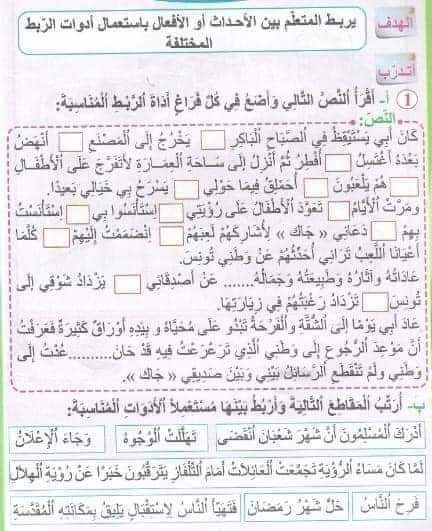 الهدف
يربط المتعلّم بين الأحداث أو الأفعال باستعمال أدوات الرّبط
المختلفة
أتدرّب
1 أ- أَقْرَأُ النَّصَّ التَّالِيَ وَأَضَعُ فِي كُلِّ فَرَاغٍ أَدَاةَ الرَّبْطِ الْمُنَاسِبَةَ:
النّصّ:
كَانَ أَبِي يَسْتَيْقِظُ فِي الصَّبَاحِ الْبَاكِرِ يَخْرُجُ إِلَى الْمَصْنَعِ أَنْهَضُ
بَعْدَهُ أَغْتَسِلُ أُفْطِرُ ثُمَّ أَنْزِلُ إِلَى سَاحَةِ الْعِمَارَةِ لِأَتَفَرَّجَ عَلَى الْأَطْفَالِ
هُمْ يَلْعَبُونَ أُحَمْلِقُ فِيمَا حَوْلِي يَسْرَحُ بِي خَيَالِي بَعِيدًا.
وَمَرَّتْ الْأَيَّامُ تَعَوَّدَ الْأَطْفَالُ عَلَى رُؤْيَتِي اِسْتَأْنَسُوا بِي اِسْتَأْنَسْتُ
بِهِمْ دَعَانِي » جَاك « لِأُشَارِكَهُمْ لَعِبَهُمْ اِنْضَمَمْتُ إِلَيْهِمْ كُلَّمَا
أَعْيَانَا اللَّعِبُ تَرَانِي أُحَدِّثُهُمْ عَنْ وَطَنِي تُونِسَ.
عَادَاتُهُ وَآثَارُهُ وَطَبِيعَتُهُ وَجَمَالُهُ....... عَنْ أَصْدِقَائِي يَزْدَادُ شَوْقِي إِلَى
تُونِسَ تَزْدَادُ رَغْبَتُهُمْ فِي زِيَارَتِهَا.
عَادَ أَبِي يَوْمًا إِلَى الشَّقَّةِ وَالْفَرْحَةُ تَبْدُو عَلَى مُحَيَّاهُ وَبِيَدِهِ أَوْرَاقٌ كَثِيرَةٌ فَعَرَفْتُ
أَنَّ مَوْعِدَ الرُّجُوعِ إِلَى وَطَنِي الَّذِي تَرَعْرَعْتُ فِيهِ قَدْ حَانَ..........عُدْتُ إِلَى
وَطَنِي وَلَمْ تَنْقَطِعِ الرَّسَائِلُ بَيْنِي وَبَيْنَ صَدِيقِي » جَاك «.
ب- أُرَتِّبُ الْمَقَاطِعَ التَّالِيَةَ وَأَرْبِطُ بَيْنَهَا مُسْتَعْمِلاً الْأَدَوَاتِ الْمُنَاسِبَةَ:
أَدْرَكَ الْمُسْلِمُونَ أَنَّ شَهْرَ شَعْبَانَ انْقَضَى تَهَلَّلَتْ الْوُجُوهُ وَجَاءَ الْإِعْلَانُ
لَمَّا كَانَ مَسَاءُ الرُّؤْيَةِ تَجَمَّعَتْ الْعَائِلَاتُ أَمَامَ التِّلْفَازِ يَتَرَقَّبُونَ خَبَرًا عَنْ رُؤْيَةِ الْهِلَالِ
فَرِحَ النَّاسُ حَلَّ شَهْرُ رَمَضَانَ فَتَهَيَّأَ النَّاسُ لِاسْتِقْبَالٍ يَلِيقُ بِمَكَانَتِهِ الْمُقَدَّسَةِ